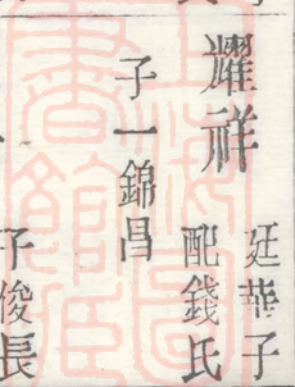 耀祥
廷華子
配錢氏
子一錦昌
子俊長